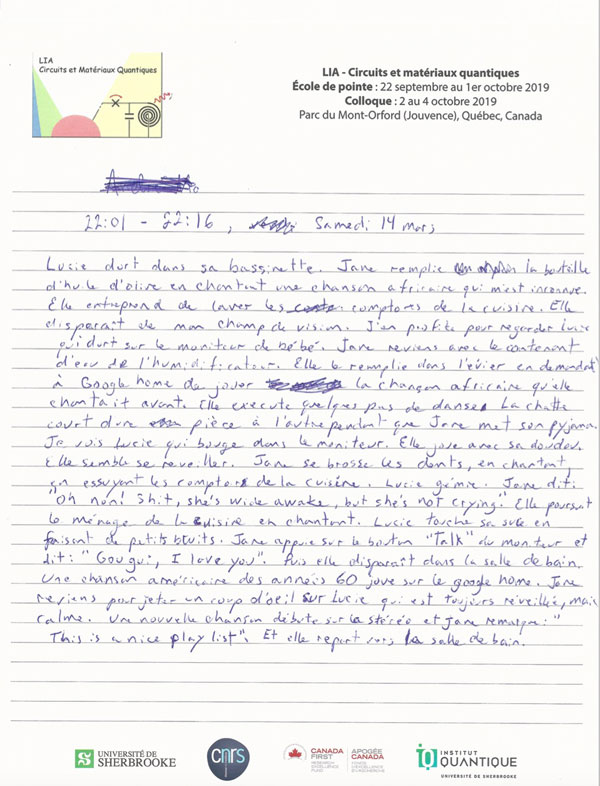 LIA
Circuits et Matériaux Quantiques
LIA - Circuits et matériaux quantiques
École de pointe : 22 septembre au 1er octobre 2019
Colloque : 2 au 4 octobre 2019
Parc du Mont-Orford (Jouvence), Québec, Canada
22:01 - 22:16, Samedi 14 mars
Lucie dort dans sa bassinette. Jane remplie la bouteille
d'huile d'olive en chantant une chanson africaine qui m'est inconnue.
Elle entreprend de laver les comptoirs de la cuisine. Elle
disparait de mon champ de vision. J'en profite pour regarder Lucie
qui dort sur le moniteur de bébé. Jane reviens avec le contenant
d'eau de l'humidificateur. Elle le remplie dans l'évier en demandant
à Google home de jouer la chanson africaine qu'elle
chantait avant. Elle execute quelques pas de danse. La chatte
court d'une pièce à l'autre pendant que Jane met son pyjama.
Je vois Lucie qui bouge dans le moniteur. Elle joue avec sa doudou.
Elle semble se réveiller. Jane se brosse les dents, en chantant,
en essuyant les comptoirs de la cuisine. Lucie gémie. Jane dit:
"Oh non! Shit, she's wide awake, but she's not crying." Elle poursuit
le ménage de la cuisine en chantant. Lucie touche sa en
faisant de petits bruits. Jane appuie sur le bouton "Talk" du moniteur et
dit: "Gougui, I love you". Puis elle disparaît dans la salle de bain.
Une chanson américaine des années 60 joue sur le google home. Jane
reviens pour jeter un coup d'oeil sur Lucie qui est toujours réveillée, mais
calme. Une nouvelle chanson débute sur la stéréo et Jane remarque: "
This is a nice play list". Et elle repart vers la salle de bain.
UNIVERSITÉ DE
SHERBROOKE
cnrs
CANADA
FIRST
RESEARCH
EXCELLENCE
FUND
APOGÉE
CANADA
FONDS
D'EXCELLENCE
EN RECHERCHE
iQ
INSTITUT
QUANTIQUE
UNIVERSITÉ DE SHERBROOKE